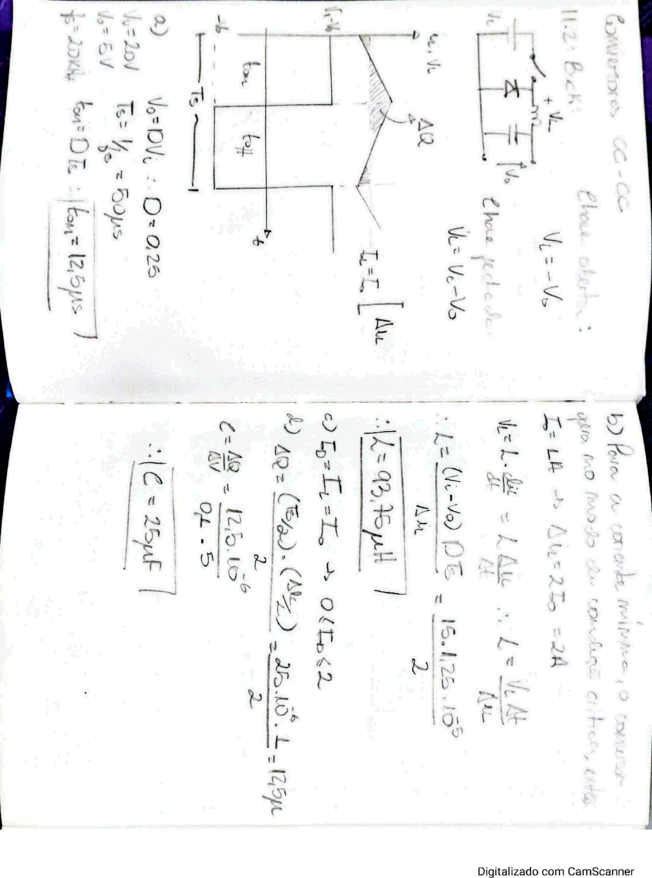 Conversores CC-CC
11.2. Buck:
Chave aberta:
VL = -Vo
Chave fechada:
VL = Vi - Vo
+ VL
Vi
Vo
iL, VL
ΔQ
IL = Io [ ΔiL
Vi-Vo
ton
toff
t
-Vo
Ts
a)
Vi = 20V
Vo = 5V
fs = 20KHz
Vo = DVi ∴ D = 0,25
Ts = 1/fs = 50μs
ton = DTs ∴ ton = 12,5μs
b) Para a corrente mínima, o conversor
opera no modo de condução crítica, então
Io = 1A → ΔiL = 2Io = 2A
VL = L.diL/dt = L ΔiL/Δt ∴ L = VL Δt/ΔiL
∴ L = (Vi-Vo) DTs / ΔiL = 15.1,25.10⁻⁵ / 2
∴ L = 93,75μH
c) ID = IL = Io → 0 < ID < 2
d) ΔQ = (Ts/2).(ΔiL/2) / 2 = 25.10⁻⁶.1 / 2 = 12,5μ
C = ΔQ/ΔV = 12,5.10⁻⁶ / 0,1.5
∴ C = 25μF
Digitalizado com CamScanner